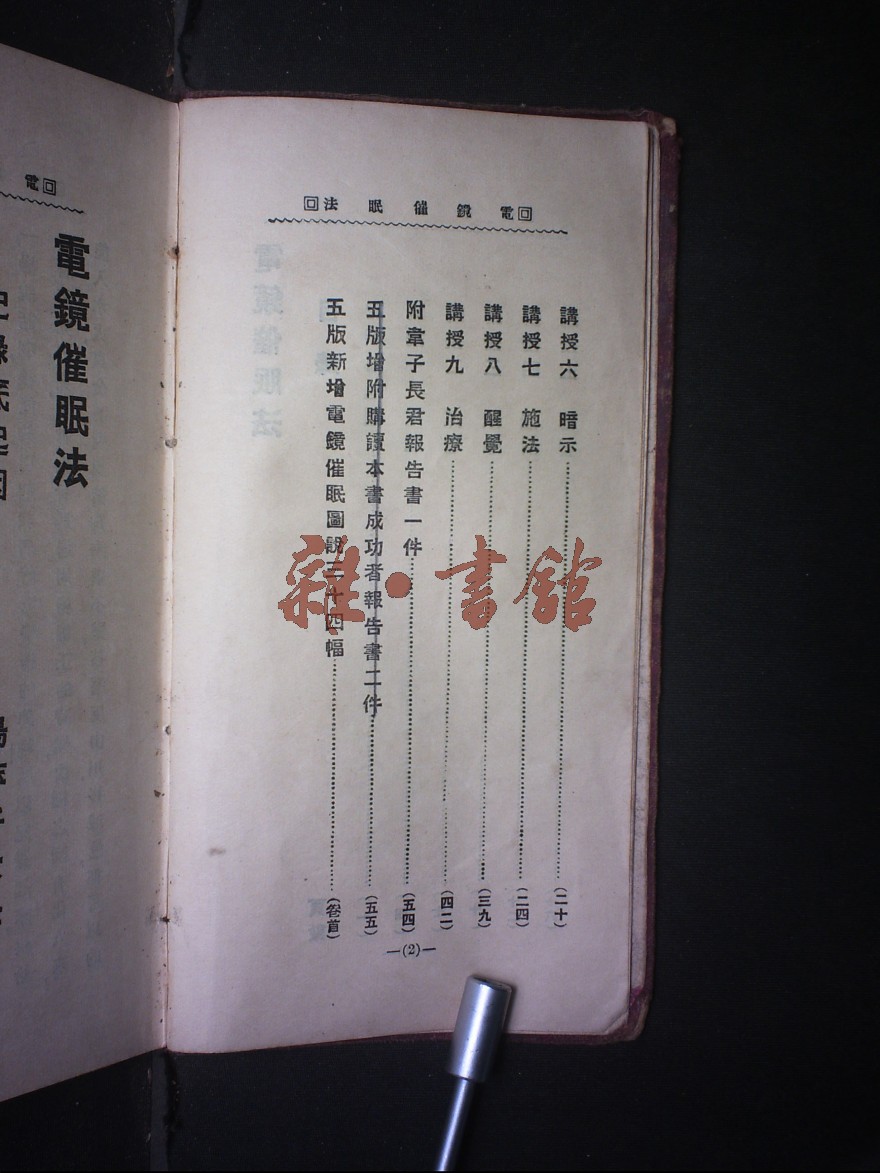 回電鏡催眠法回
講授六　暗示……(二十)
講授七　施法……(二四)
講授八　醒覺……(三九)
講授九　治療……(四二)
附章子長君報告書一件……(五四)
五版增附購讀本書成功者報告書二件……(五五)
五版新增電鏡催眠圖說三十四幅……(卷首)
—(2)—
回電
電鏡催眠法
雜·書館